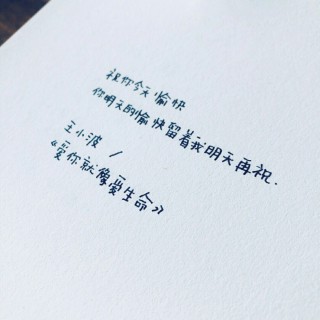 祝你今天愉快
你明天的愉快留着我明天再祝.
王小波 /
《爱你就像爱生命》